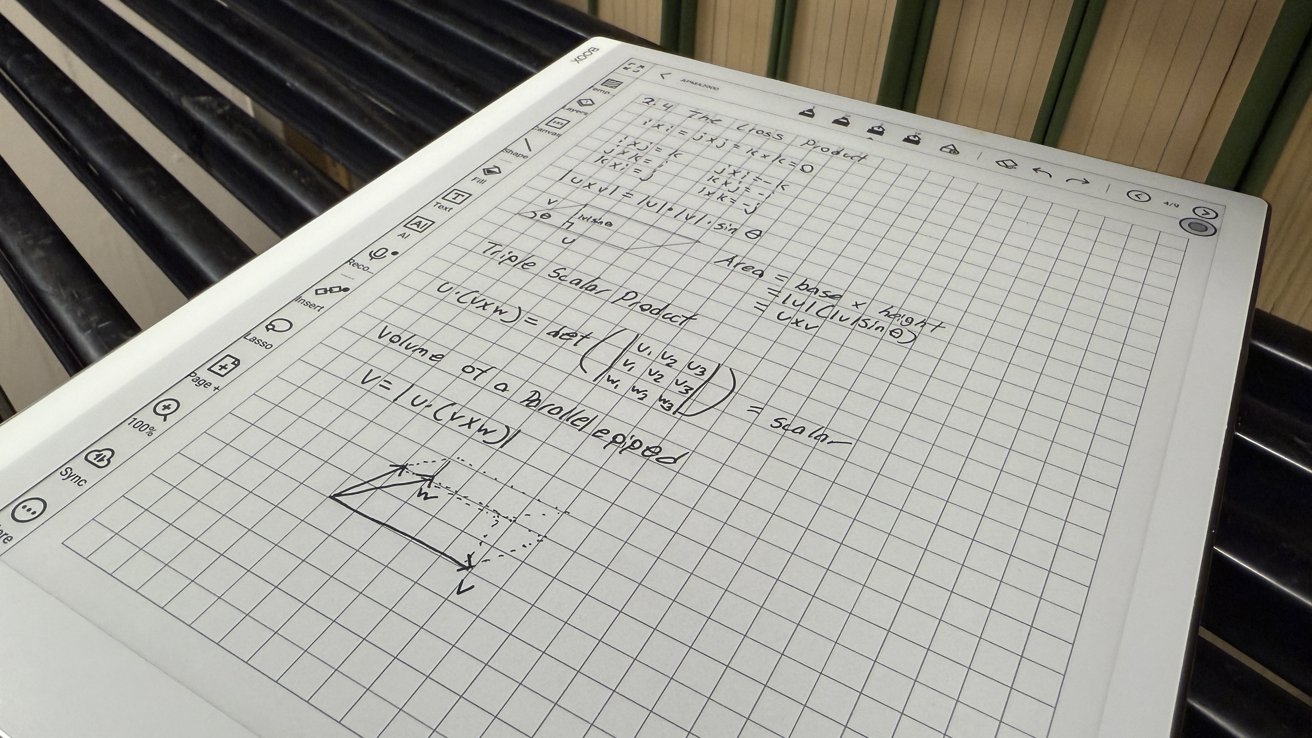 BOOX
APMA2000
4/9
Layers
Canvas
Shape
Fill
Text
AI
Reco...
Insert
Lasso
Page +
100%
Sync
2.4 The Cross Product
i×i = j×j = k×k = 0
i×j = k    j×i = -k
j×k = i    k×j = -i
k×i = j    i×k = -j
|u×v| = |u|·|v|·sin θ
v
θ |v|sinθ
u
Area = base × height
= |u|(|v|sinθ)
= u×v
Triple Scalar Product
u·(v×w) = det(|u₁ u₂ u₃|
v₁ v₂ v₃
|w₁ w₂ w₃|) = scalar
Volume of a Parallelepiped
V = |u·(v×w)|
w
v